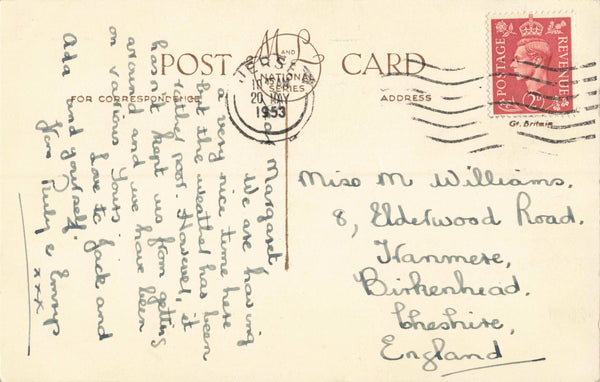 POST CARD
M AND L
NATIONAL
SERIES
FOR CORRESPONDENCE
ADDRESS
JERSEY
20 MAY
1953
POSTAGE
REVENUE
Gt. Britain
Margaret,
We are having
a very nice time here
but the weather has been
rather poor. However, it
hasn't kept us from getting
around and we have been
on various tours.
Love to Jack and
Ada and yourself.
from Ruby &
xxx
Miss M Williams.
8, Elderwood Road.
Tranmere,
Birkenhead.
Cheshire,
England